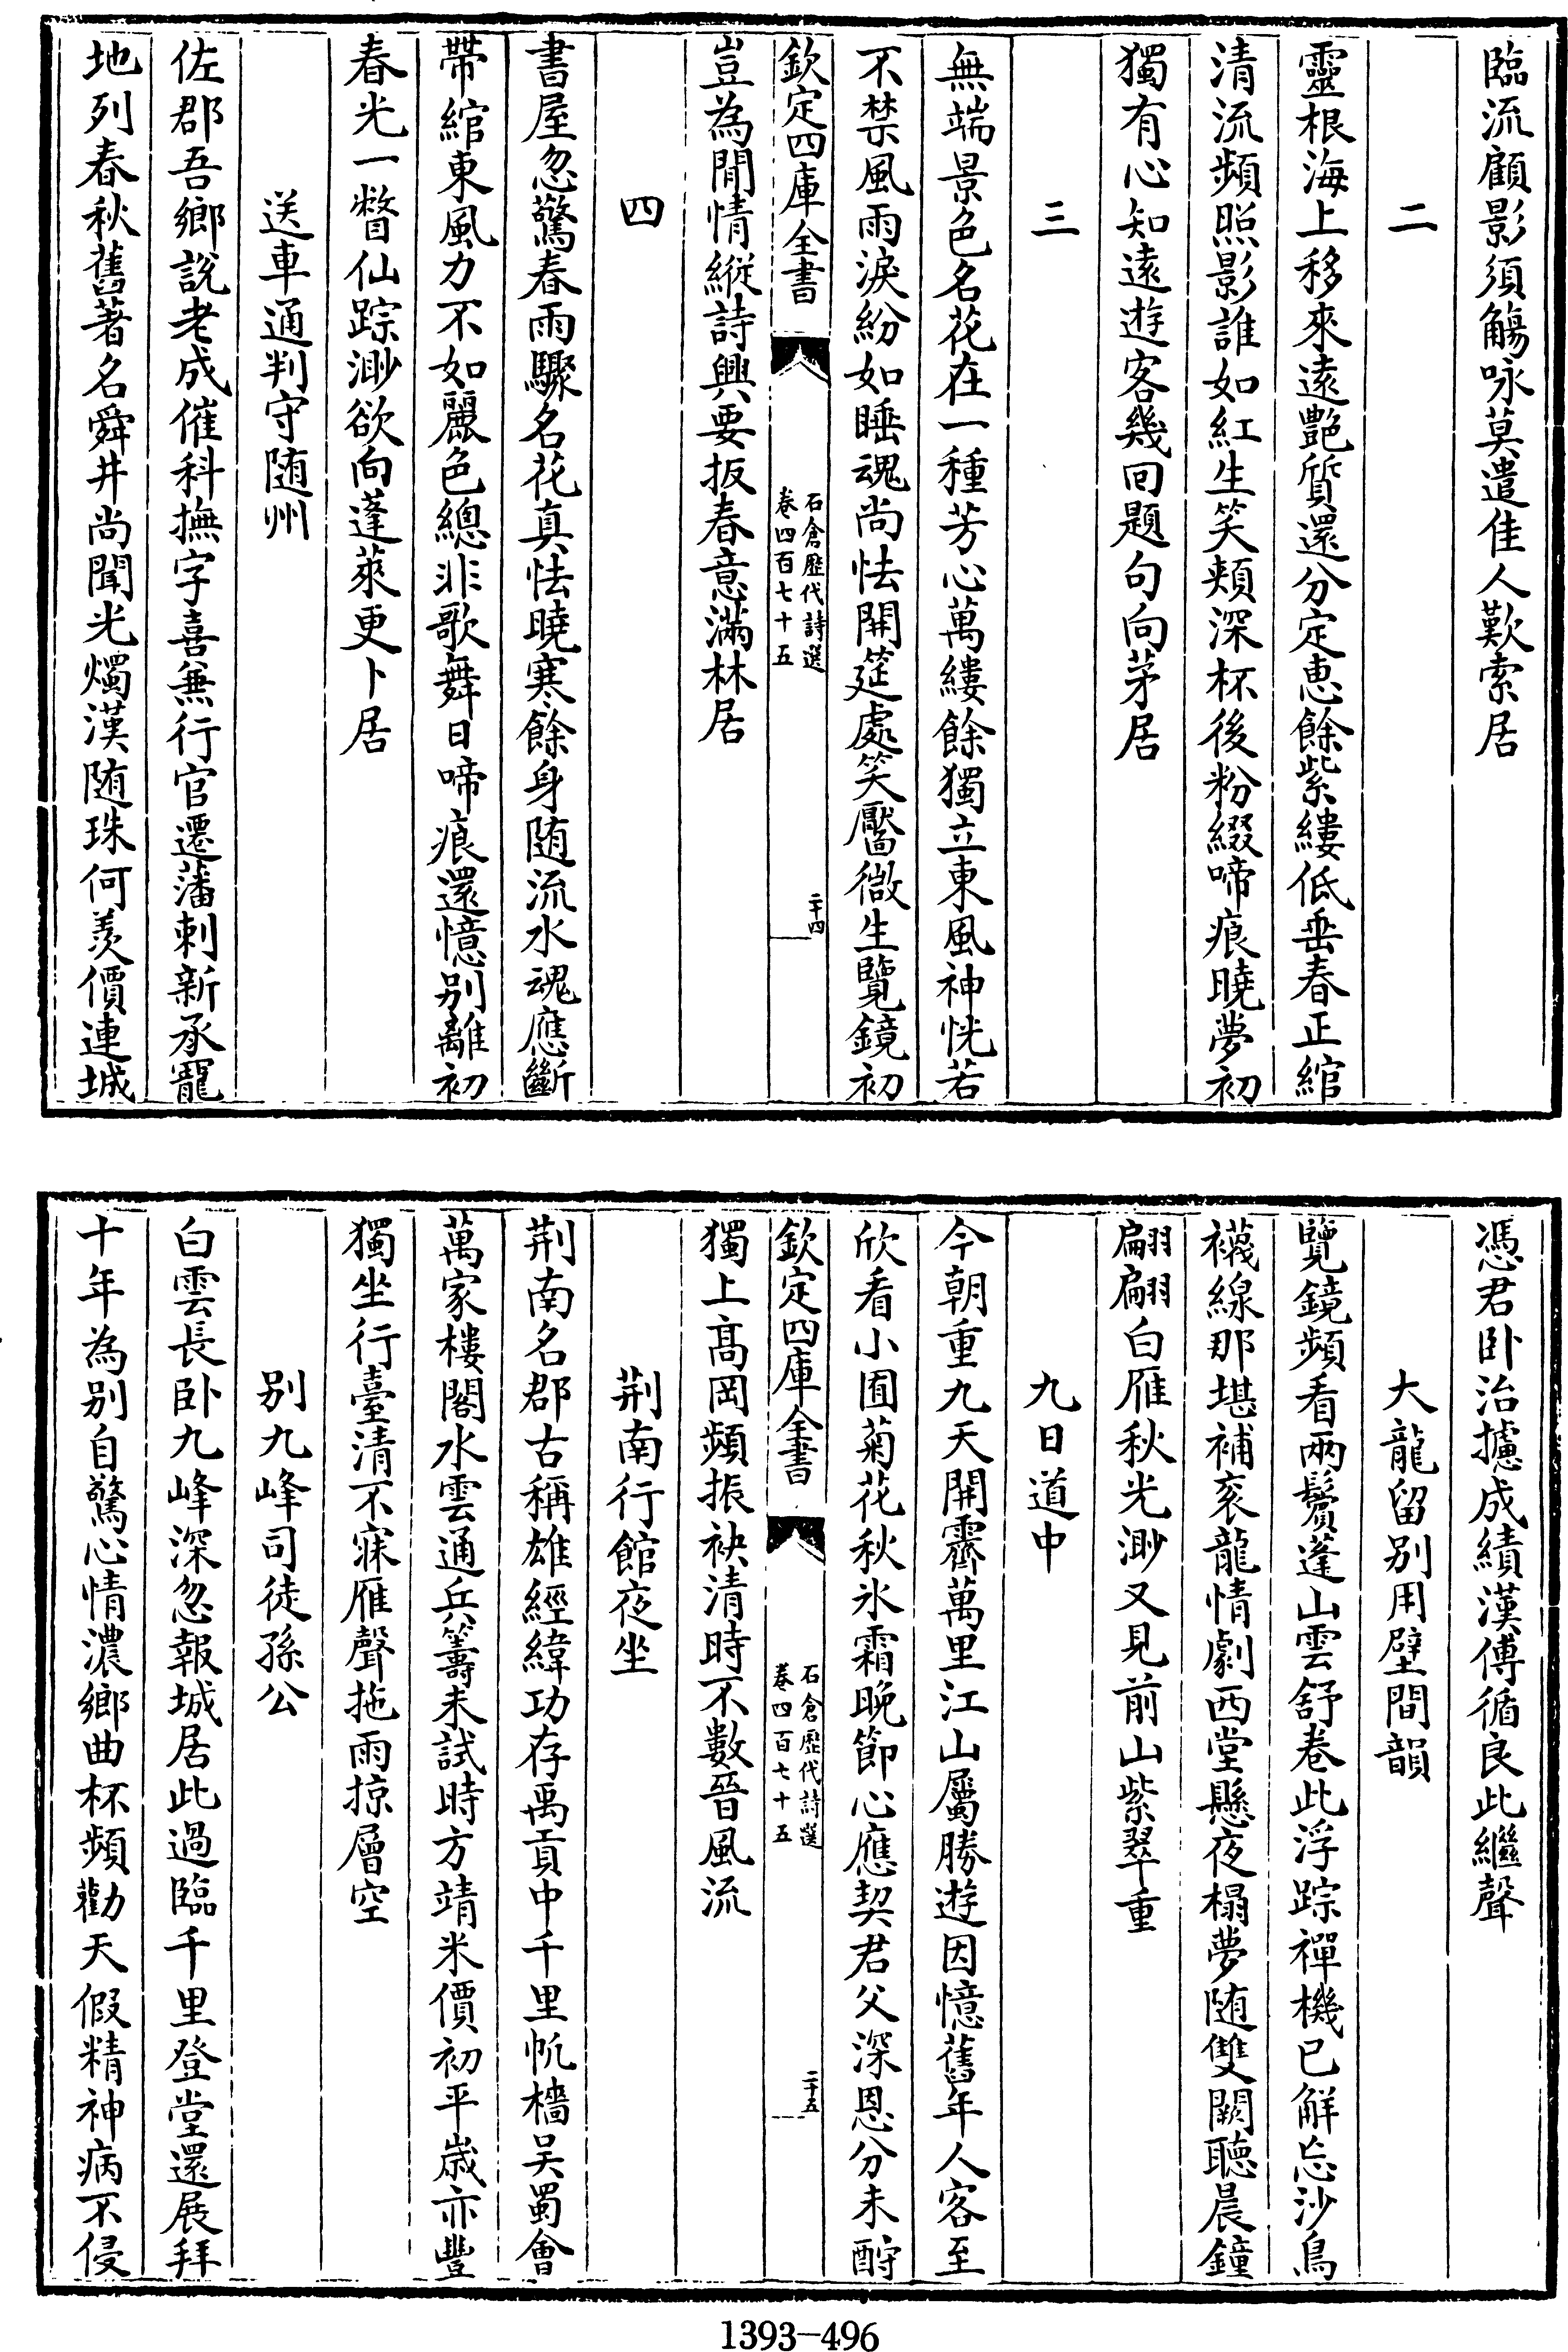 臨流顧影須觴咏莫遣佳人歎索居
二
靈根海上移來遠艶質還分定惠餘紫縷低垂春正綰
清流頻照影誰如紅生笑頰深杯後粉綴啼痕曉夢初
獨有心知遠遊客幾回題句向茅居
三
無端景色名花在一種芳心萬縷餘獨立東風神恍若
不禁風雨淚紛如睡魂尚怯開筵處笑靨微生覽鏡初
欽定四庫全書
石倉歷代詩選
卷四百七十五
二十四
豈為閒情縱詩興要扳春意滿林居
四
書屋忽驚春雨驟名花真怯曉寒餘身随流水魂應斷
帶綰東風力不如麗色總非歌舞日啼痕還憶别離初
春光一瞥仙踪渺欲向蓬萊更卜居
送車通判守随州
佐郡吾鄉說老成催科撫字喜兼行官遷藩剌新承寵
地列春秋舊著名舜井尚聞光燭漢随珠何羨價連城
憑君卧治攄成績漢傳循良此繼聲
大龍留别用壁間韻
覽鏡頻看兩鬢蓬山雲舒巻此浮踪禪機已觧忘沙鳥
襪線那堪補衮龍情劇西堂懸夜榻夢随雙闕聽晨鐘
翩翩白雁秋光渺又見前山紫翠重
九日道中
今朝重九天開霽萬里江山屬勝遊因憶舊年人客至
欣看小囿菊花秋氷霜晚節心應契君父深恩分未酧
欽定四庫全書
石倉歷代詩選
卷四百七十五
二十五
獨上髙岡頻振袂清時不數晉風流
荆南行館夜坐
荆南名郡古稱雄經緯功存禹貢中千里帆檣吴蜀會
萬家樓閣水雲通兵籌未試時方靖米價初平嵗亦豐
獨坐行臺清不寐雁聲拖雨掠層空
别九峰司徒孫公
白雲長卧九峰深忽報城居此過臨千里登堂還展拜
十年為别自驚心情濃鄉曲杯頻勸天假精神病不侵
1393—496